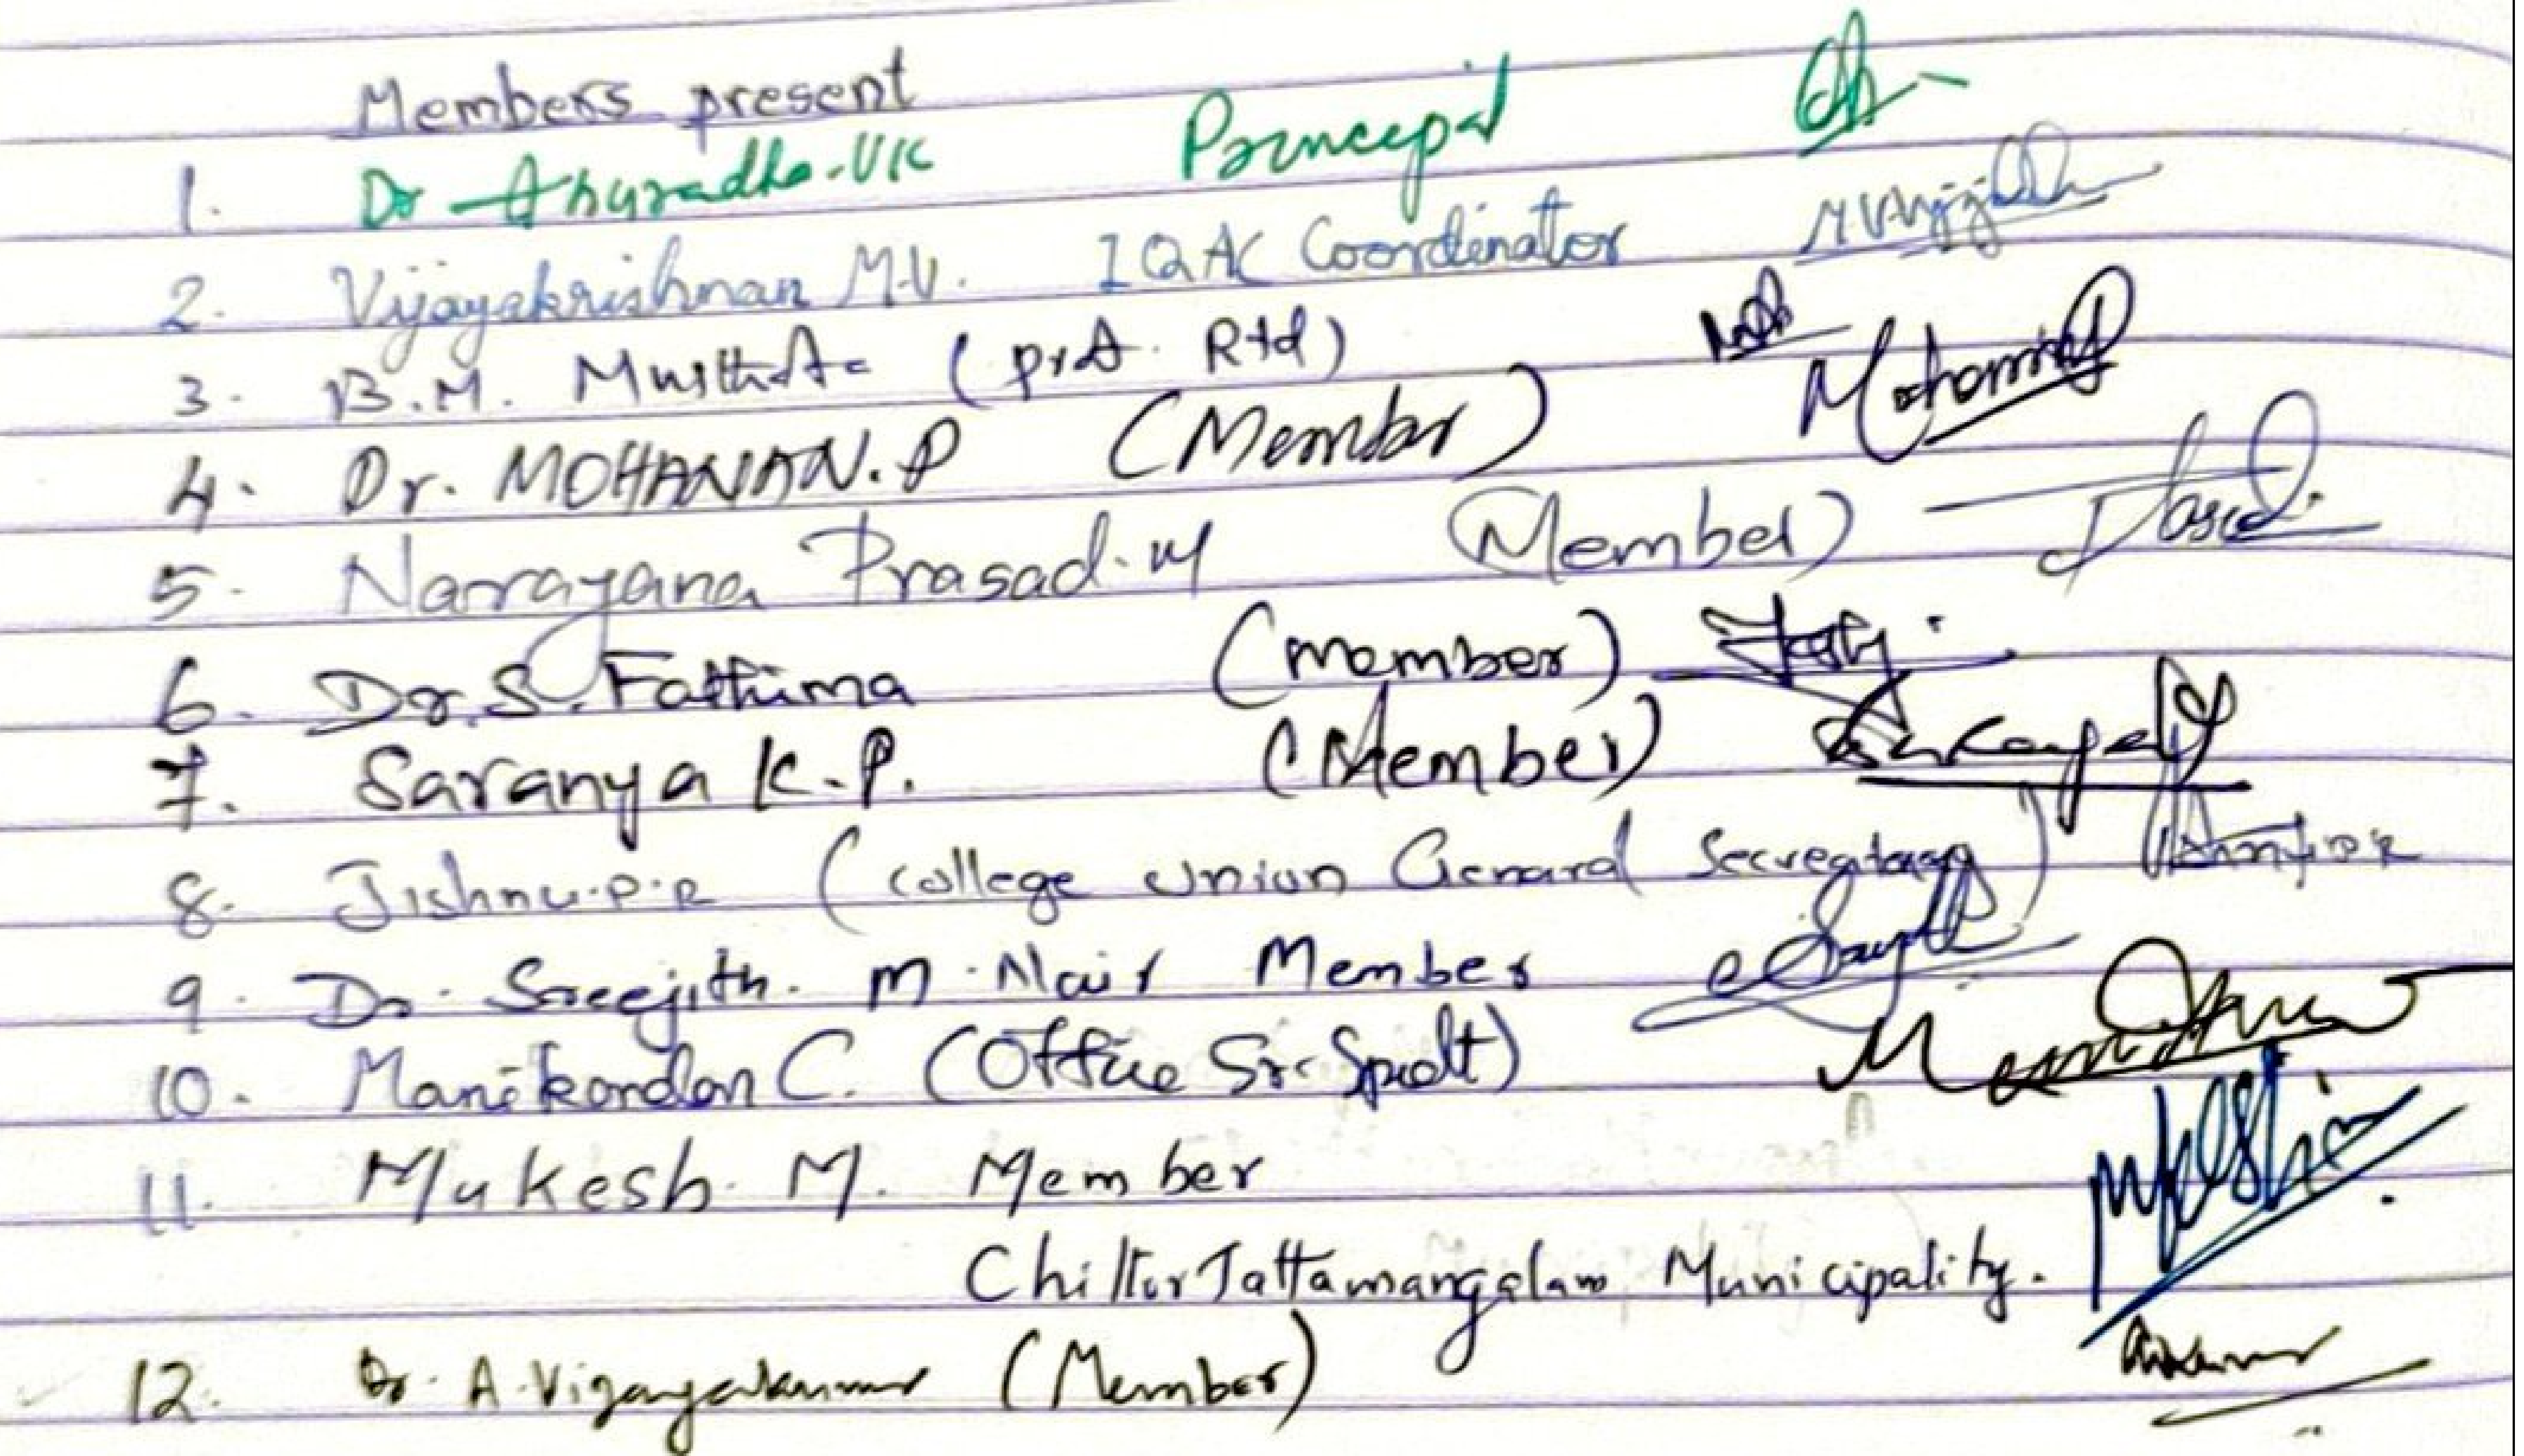 Members present
1. Dr Anuradha.VK Principal
2. Vijayakrishnan M.V. IQAC Coordinator
3. B.M. Musthafa ( Rtd)
4. Dr. MOHANAN.P (Member)
5. Narayana Prasad.M (Member)
6. Dr.S.Fathima (Member)
7. Saranya K.P. (Member)
8. Jishnu.P.R (college union General Secregtary)
9. Dr. Sreejith. M. Nair Member
10. Manikandan C. (Office Sr. Spdt)
11. Mukesh. M. Member
Chittur Tattamangalam Municipality.
12. Dr. A. Vijayakumar (Member)